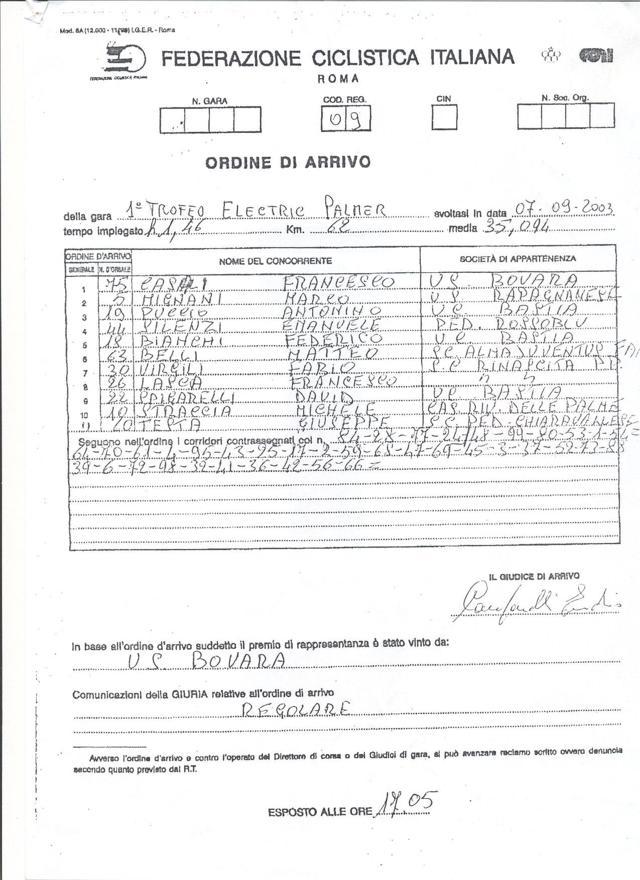 Mod. 6A (12.000 - 11/98) I.G.E.R. - Roma
FEDERAZIONE CICLISTICA ITALIANA
FEDERAZIONE CICLISTICA ITALIANA
ROMA
N. GARA COD. REG. CIN N. Soc. Org.
09
ORDINE DI ARRIVO
della gara 1° TROFEO ELECTRIC PALMER svoltasi in data 07-09-2003
tempo impiegato h 1,46 Km. 62 media 35,094
ORDINE D'ARRIVO NOME DEL CONCORRENTE SOCIETÀ DI APPARTENENZA
GENERALE N. D'ORDINE
1 75 CASALI FRANCESCO U.S. BOVARA
2 5 MIGNANI MARCO U.S. RAPAGNANESE
3 19 PUCCIO ANTONINO UC BASTIA
4 44 SILENZI EMANUELE PED. ROSSOBLU
5 18 BIANCHI FEDERICO U.C. BASTIA
6 63 BELLI MATTEO SC ALMA JUVENTUS FA
7 30 VIRGILI FABIO S.C RINASCITA
8 26 LASCA FRANCESCO
9 22 DAVID UC BASTIA
10 10 STRACCIA MICHELE CAS RIV. DELLE PALME
11 20 TESTA GIUSEPPE S.C. PED. CHIARAVALLESE
Seguono nell'ordine i corridori contrassegnati col n. 84-28-77-24/48-99-80-53-1-54=
64-70-61-4-95-43-25-17-2-59-65-47-69-45-3-37-52-73-88
39-6-72-98-32-41-36-42-56-66=
IL GIUDICE DI ARRIVO
In base all'ordine d'arrivo suddetto il premio di rappresentanza è stato vinto da:
U.S. BOVARA
Comunicazioni della GIURIA relative all'ordine di arrivo
REGOLARE
Avverso l'ordine d'arrivo e contro l'operato del Direttore di corsa o dei Giudici di gara, si può avanzare reclamo scritto ovvero denuncia
secondo quanto previsto dal R.T.
ESPOSTO ALLE ORE 17.05